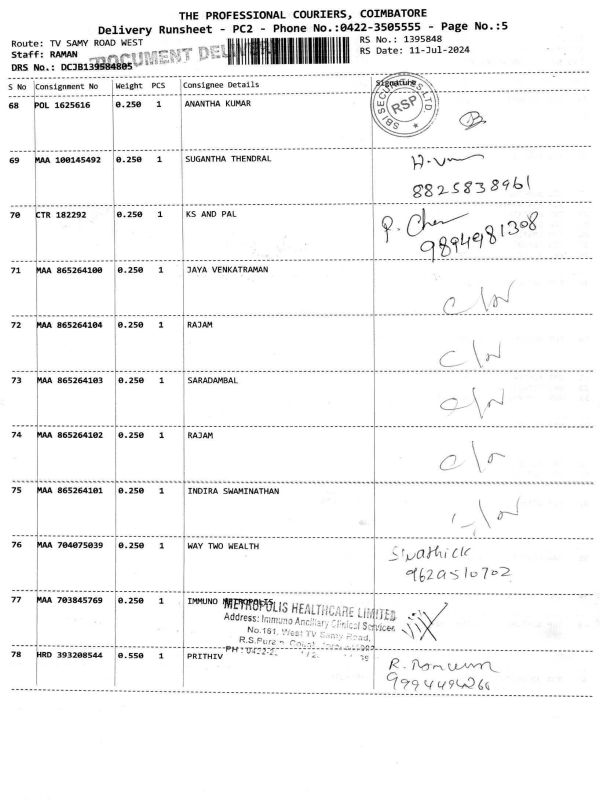 THE PROFESSIONAL COURIERS, COIMBATORE
Delivery Runsheet - PC2 - Phone No.:0422-3505555 - Page No.:5
Route: TV SAMY ROAD WEST
RS No.: 1395848
Staff: RAMAN
DOCUMENT DELIVERY
RS Date: 11-Jul-2024
DRS No.: DCJB139584805
S No Consignment No Weight PCS Consignee Details Signature
68 POL 1625616 0.250 1 ANANTHA KUMAR
RSP
69 MAA 100145492 0.250 1 SUGANTHA THENDRAL
8825838961
70 CTR 182292 0.250 1 KS AND PAL
9894981308
71 MAA 865264100 0.250 1 JAYA VENKATRAMAN
72 MAA 865264104 0.250 1 RAJAM
73 MAA 865264103 0.250 1 SARADAMBAL
74 MAA 865264102 0.250 1 RAJAM
75 MAA 865264101 0.250 1 INDIRA SWAMINATHAN
76 MAA 704075039 0.250 1 WAY TWO WEALTH
77 MAA 703845769 0.250 1 IMMUNO METROPOLIS
METROPOLIS HEALTHCARE LIMITED
Address: Immuno Ancillary Clinical Services
No.161, West TV Samy Road,
78 HRD 393208544 0.550 1 PRITHIV